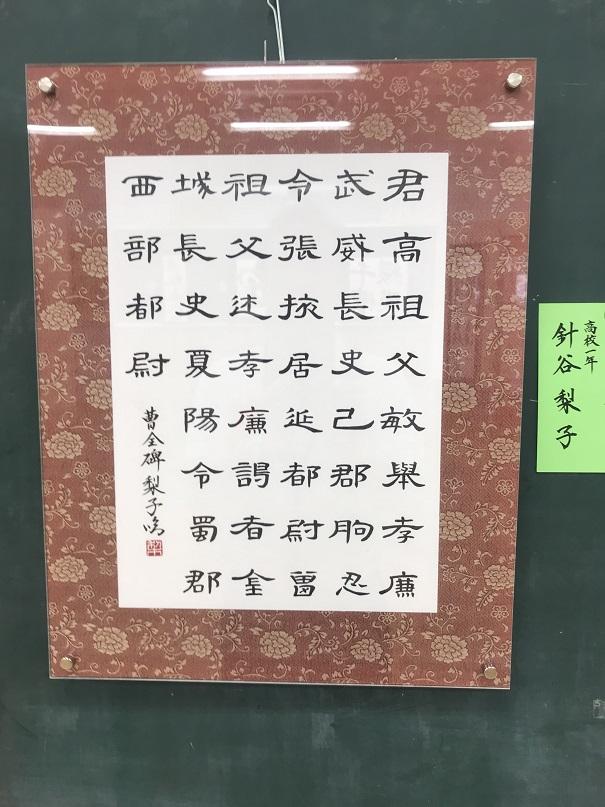 君高祖父敏舉孝廉
武威長史巴郡朐忍
令張掖居延都尉曽
祖父述孝廉謁者金
城長史夏陽令蜀郡
西部都尉
曹全碑 梨子臨
高校一年
針谷梨子